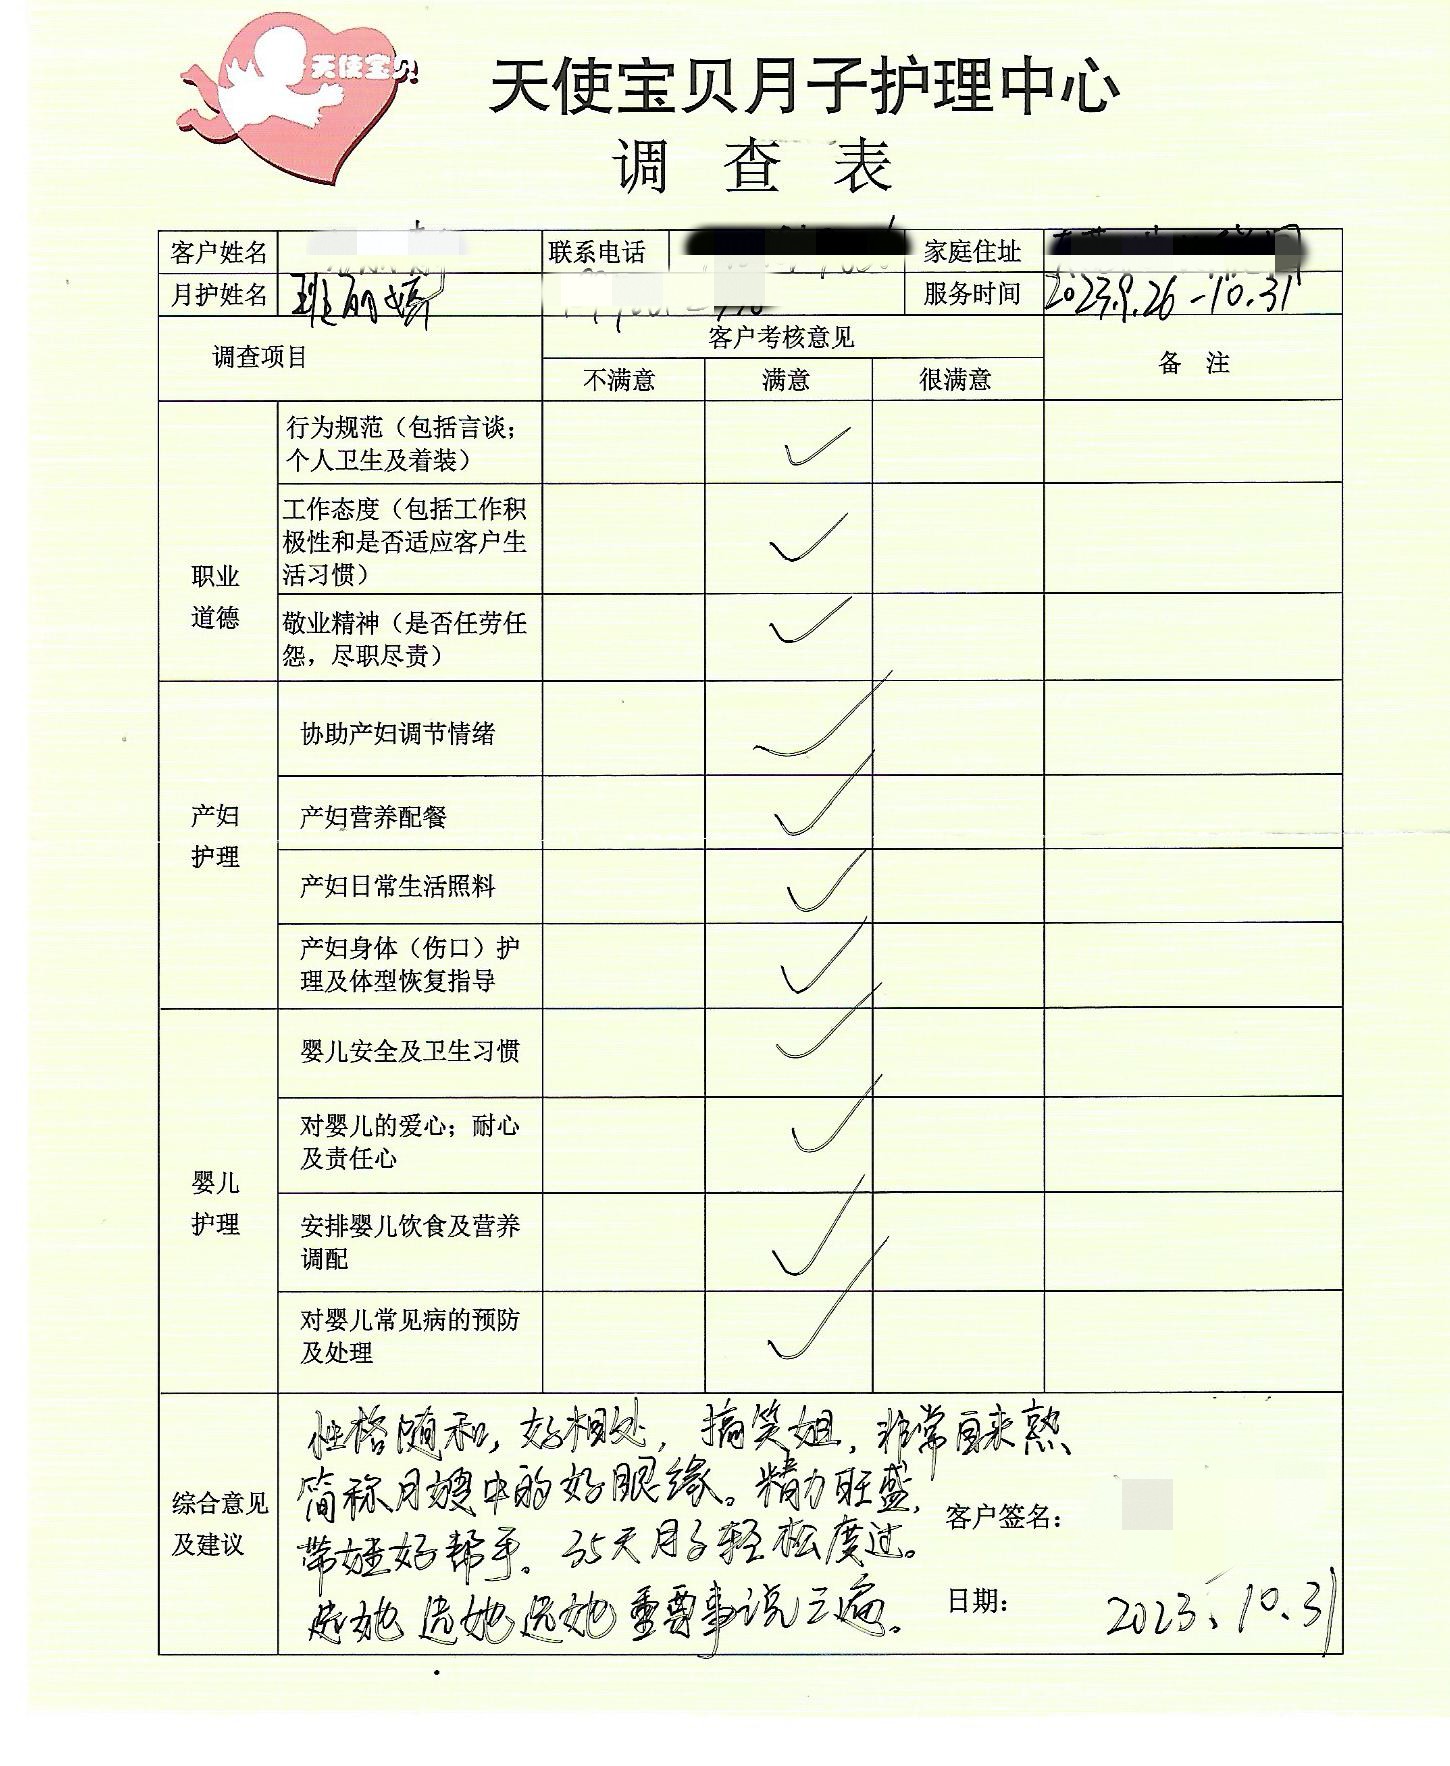 天使宝贝
天使宝贝月子护理中心
调 查 表
客户姓名 联系电话 家庭住址
月护姓名 班丽婷 服务时间 2023.9.26-10.31
调查项目 客户考核意见 备 注
不满意 满意 很满意
职业
道德
行为规范（包括言谈；
个人卫生及着装） ✓
工作态度（包括工作积
极性和是否适应客户生 ✓
活习惯）
敬业精神（是否任劳任 ✓
怨，尽职尽责）
产妇
护理
协助产妇调节情绪 ✓
产妇营养配餐 ✓
产妇日常生活照料 ✓
产妇身体（伤口）护
理及体型恢复指导 ✓
婴儿
护理
婴儿安全及卫生习惯 ✓
对婴儿的爱心；耐心
及责任心 ✓
安排婴儿饮食及营养
调配 ✓
对婴儿常见病的预防
及处理 ✓
综合意见
及建议
性格随和，好相处，搞笑姐，非常自来熟
简称月嫂中的好眼缘。精力旺盛，
带娃好帮手。35天月子轻松度过。
选她选她选她重要事说三遍。
客户签名：
日期： 2023.10.31